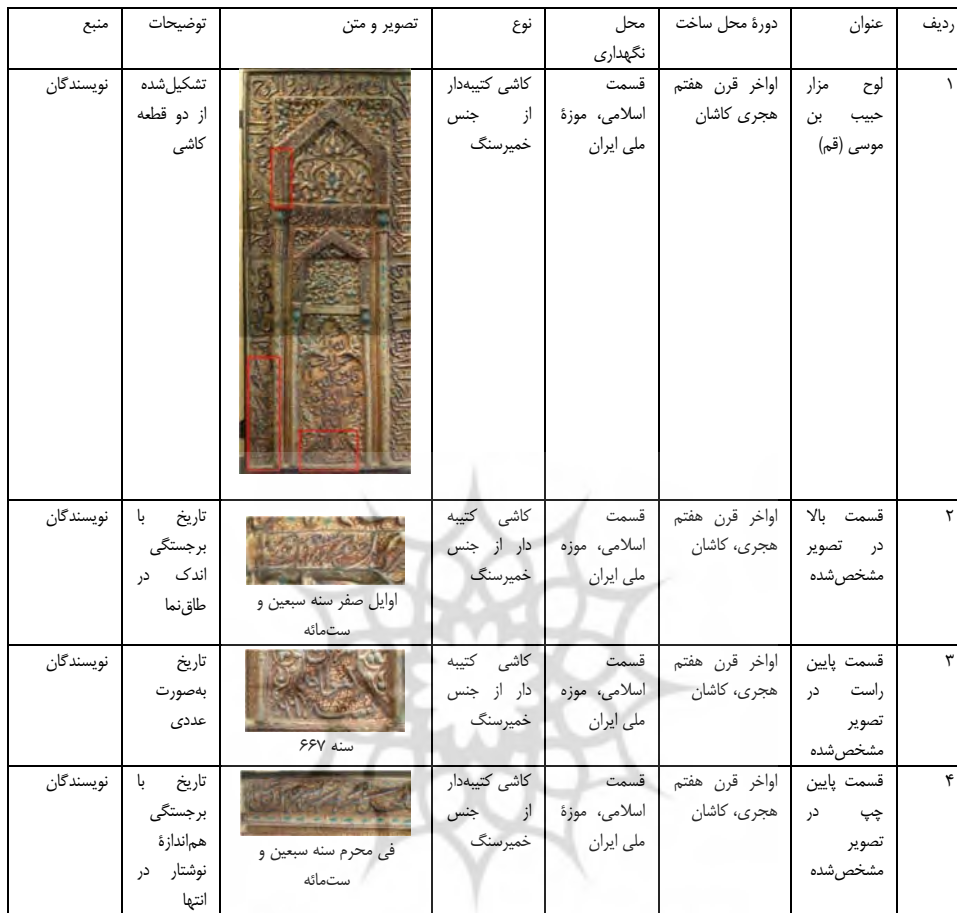 ردیف
عنوان
دورهٔ محل ساخت
محل
نگهداری
نوع
تصویر و متن
توضیحات
منبع
۱
لوح مزار
حبیب بن
موسی (قم)
اواخر قرن هفتم
هجری کاشان
قسمت
اسلامی، موزهٔ
ملی ایران
کاشی کتیبه‌دار
از جنس
خمیرسنگ
تشکیل‌شده
از دو قطعه
کاشی
نویسندگان
۲
قسمت بالا
در تصویر
مشخص‌شده
اواخر قرن هفتم
هجری، کاشان
قسمت
اسلامی، موزه
ملی ایران
کاشی کتیبه
دار از جنس
خمیرسنگ
اوایل صفر سنه سبعین و
ست‌مائه
تاریخ با
برجستگی
اندک در
طاق‌نما
نویسندگان
۳
قسمت پایین
راست در
تصویر
مشخص‌شده
اواخر قرن هفتم
هجری، کاشان
قسمت
اسلامی، موزه
ملی ایران
کاشی کتیبه
دار از جنس
خمیرسنگ
سنه ۶۶۷
تاریخ
به‌صورت
عددی
نویسندگان
۴
قسمت پایین
چپ در
تصویر
مشخص‌شده
اواخر قرن هفتم
هجری، کاشان
قسمت
اسلامی، موزهٔ
ملی ایران
کاشی کتیبه‌دار
از جنس
خمیرسنگ
فی محرم سنه سبعین و
ست‌مائه
تاریخ با
برجستگی
هم‌اندازهٔ
نوشتار در
انتها
نویسندگان